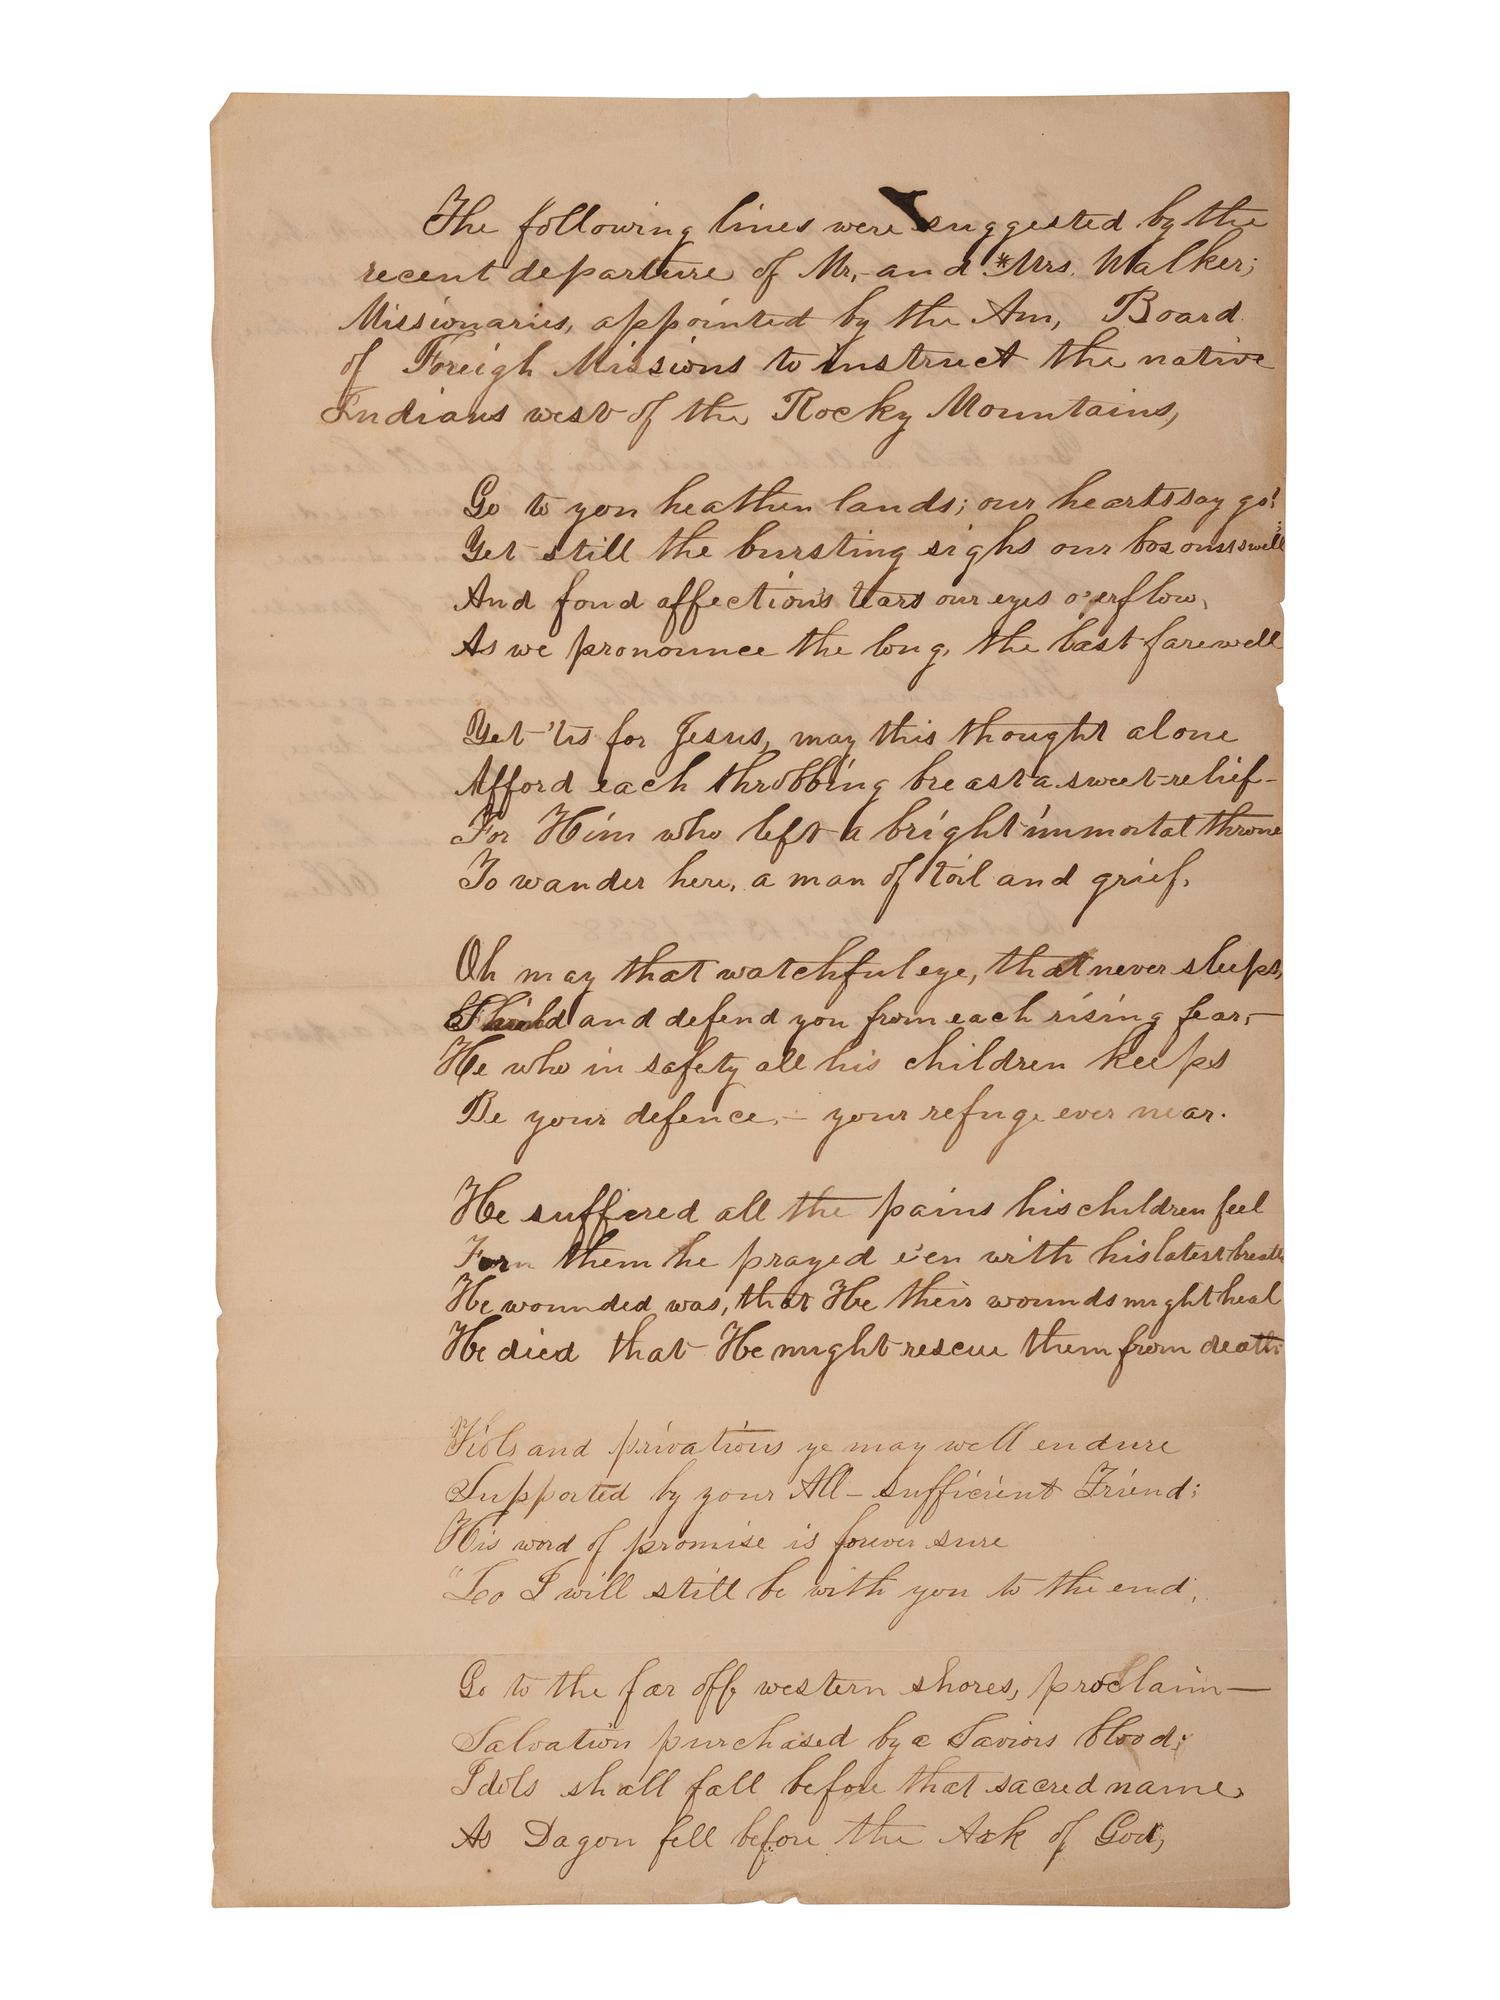 The following lines were suggested by the
recent departure of Mr, and *Mrs. Walker;
Missionaries, appointed by the Am, Board
of Foreigh Missions to instruct the native
Indians west of the Rocky Mountains,
Go to yon heathen lands; our hearts say go!
Yet still the bursting sighs our bosoms swell
And fond affection's tears our eyes o'erflow,
As we pronounce the long, the last farewell
Yet 'tis for Jesus, may this thought alone
Afford each throbbing breast a sweet relief-
For Him who left a bright immortal throne
To wander here, a man of toil and grief,
Oh may that watchful eye, that never sleeps,
Shield and defend you from each rising fear,-
He who in safety all his children keeps
Be your defence,- your refuge ever near.
He suffered all the pains his children feel
For them he prayed e'en with his latest breath
He wounded was, that He their wounds might heal
He died that He might rescue them from death
Tiols and privations ye may well endure
Supported by your All-sufficient Friend;
His word of promise is forever sure
"Lo I will still be with you to the end;
Go to the far off, western shores, proclaim-
Salvation purchased by a Saviors blood;
Idols shall fall before that sacred name,
As Dagon fell before the Ark of God,